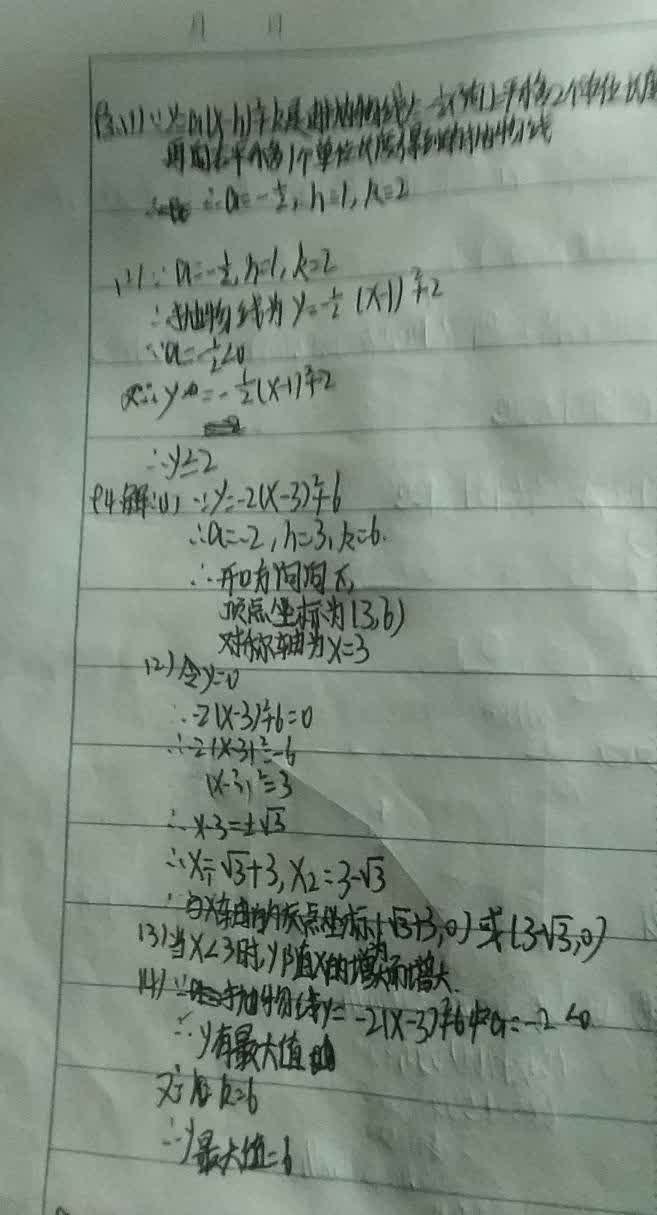 (1) ∵y=a(x-h)²+k是由抛物线y=-½x²向上平移2个单位长度
再向右平移1个单位长度得到的抛物线
∴a=-½, h=1, k=2
(2) ∵a=-½, h=1, k=2
∴抛物线为y=-½(x-1)²+2
∵a=-½<0
∴y=-½(x-1)²+2
∴y≤2
解:(1) ∵y=-2(x-3)²+6
∴a=-2, h=3, k=6.
∴开口方向向下,
顶点坐标为(3,6)
对称轴为x=3
(2) 令y=0
∴-2(x-3)²+6=0
∴-2(x-3)²=-6
(x-3)²=3
∴x-3=±√3
∴x₁=√3+3, x₂=3-√3
∴与x轴的交点坐标(√3+3,0)或(3-√3,0)
(3) 当x<3时,y随x的增大而增大.
(4) ∵抛物线y=-2(x-3)²+6中a=-2<0
∴y有最大值
k=6
∴y最大值=6